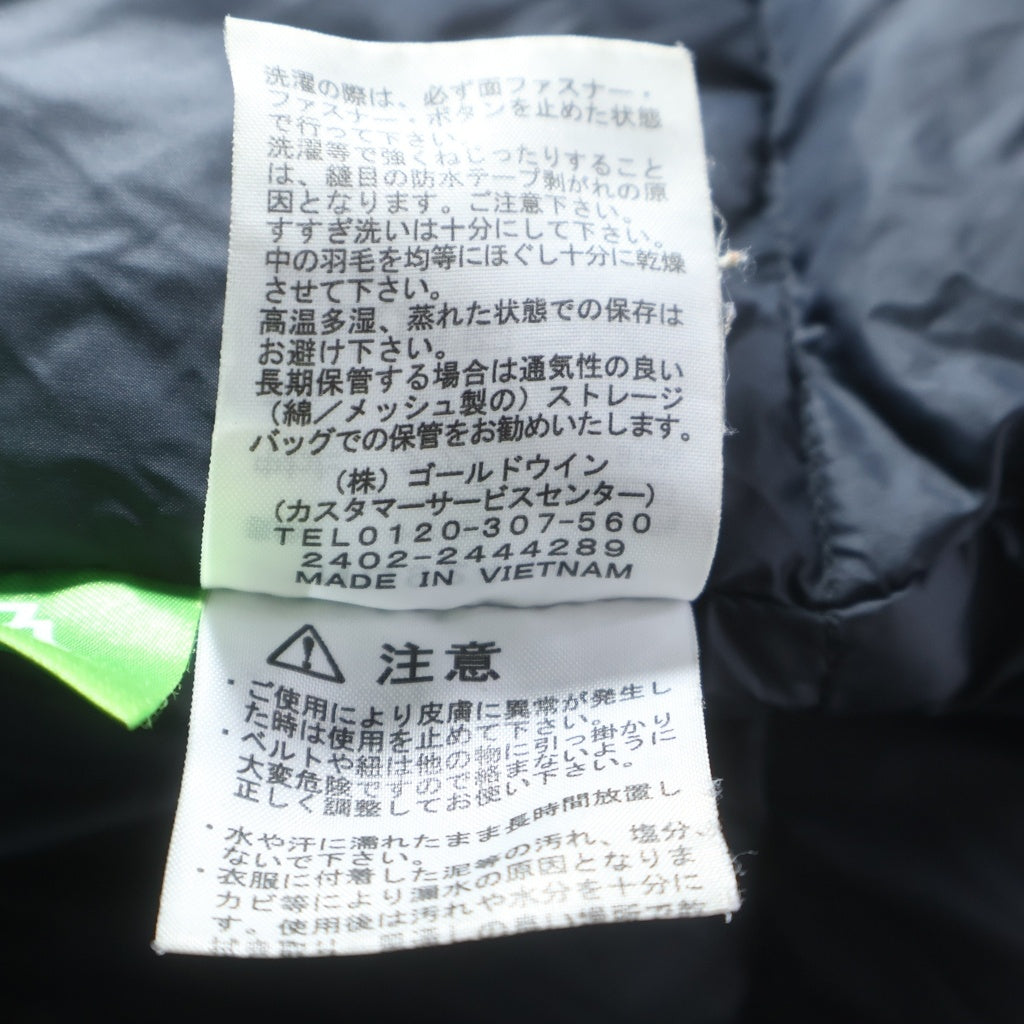 洗濯の際は、必ず面ファスナー・
ファスナー・ボタンを止めた状態
で行って下さい。
洗濯等で強くねじったりすること
は、縫目の防水テープ剥がれの原
因となります。ご注意下さい。
すすぎ洗いは十分にして下さい。
中の羽毛を均等にほぐし十分に乾燥
させて下さい。
高温多湿、蒸れた状態での保存は
お避け下さい。
長期保管する場合は通気性の良い
(綿/メッシュ製の)ストレージ
バッグでの保管をお勧めいたします。
(株)ゴールドウイン
(カスタマーサービスセンター)
TEL0120-307-560
2402-2444289
MADE IN VIETNAM
注意
・ご使用により皮膚に異常が発生し
た時は使用を止めて下さい。
・ベルトや紐は他の物に引っ掛かり
大変危険ですので絡まないように
正しく調整してお使い下さい。
・水や汗に濡れたまま長時間放置し
ないで下さい。
・衣服に付着した泥等の汚れ、塩分、
カビ等により漏水の原因となりま
す。使用後は汚れや水分を十分に